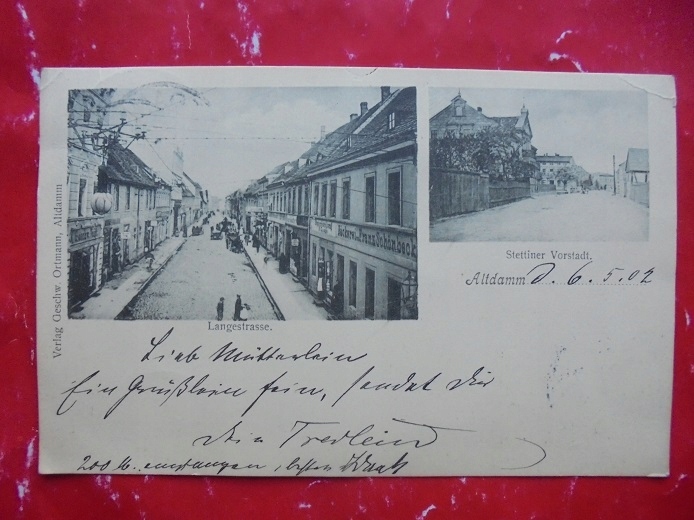 Bäckerei von Franz Schönbeck
Verlag Geschw. Ortmann, Altdamm
Langestrasse.
Stettiner Vorstadt.
Altdamm d. 6.5.02
Lieb Mütterlein
Ein Grüßlein fein, sendet dir
dein
200 M. empfangen, besten Dank